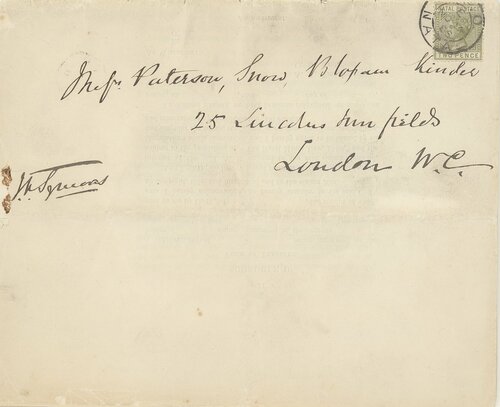 NATAL POSTAGE
TWO PENCE
Messrs. Paterson, Snow, Bloxam Kinder
25 Lincolns Inn fields
London W.C.